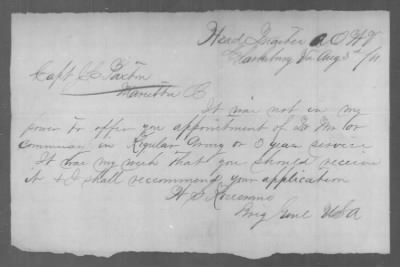 Head Quarter A O W V
Aug 3d /61
Capt J C Paxton
Marietta O.
It was not in my
power to offer you appointment of Qr Mr or
Commissary in Regular Army or 3 year service
It was my wish that you should receive
it & I shall reccommend your application
W S Rosecrans
Brig Genl USA